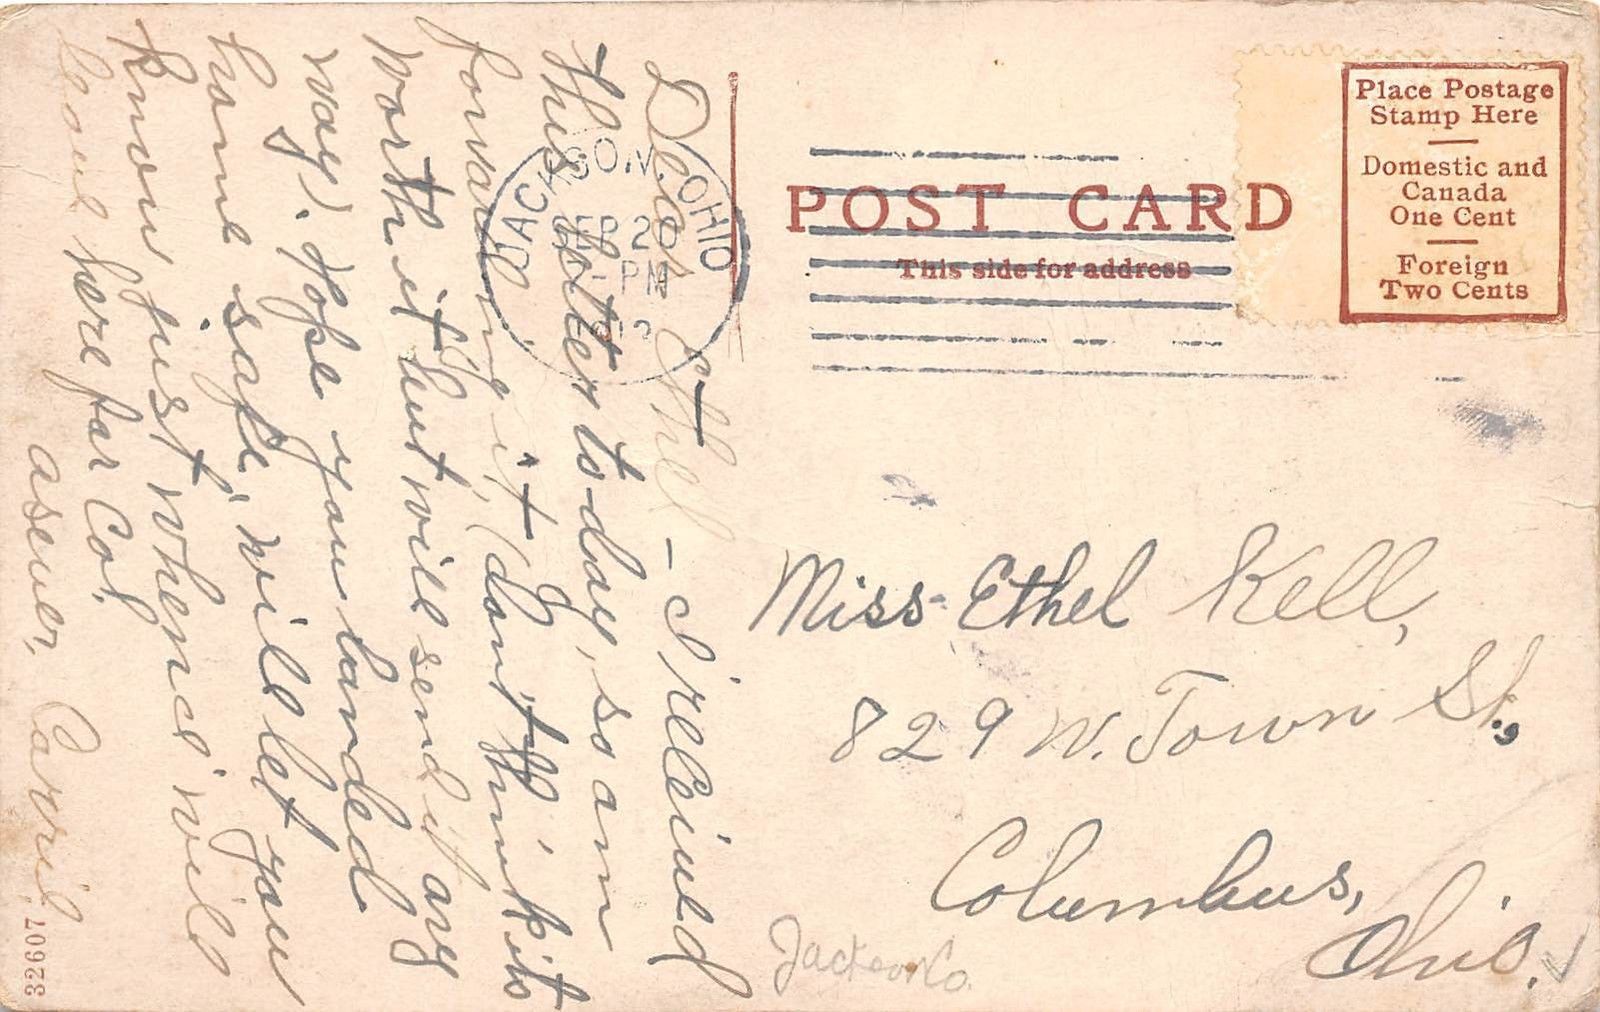 Dear Ethel - I received
this letter to-day, so am
forwarding it, (don't think its
worth it but will send it any
way). Hope you landed
home safe, will let you
know just when I will
leave here for Col.
as ever, Carrie
32607
JACKSON, OHIO
SEP 2
PM
POST CARD
This side for address
Place Postage
Stamp Here
Domestic and
Canada
One Cent
Foreign
Two Cents
Miss Ethel Kell,
829 W. Town St.,
Columbus,
Ohio.
Jackson Co.